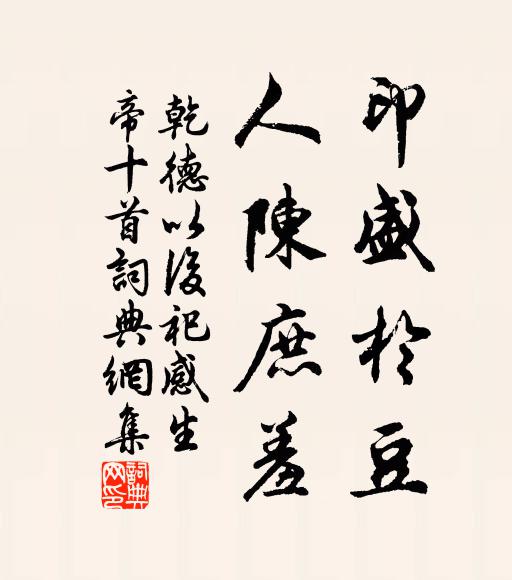 印盛於豆
人陳庶羞
乾德以後祀感生
帝十首詞典網集
詞典网印